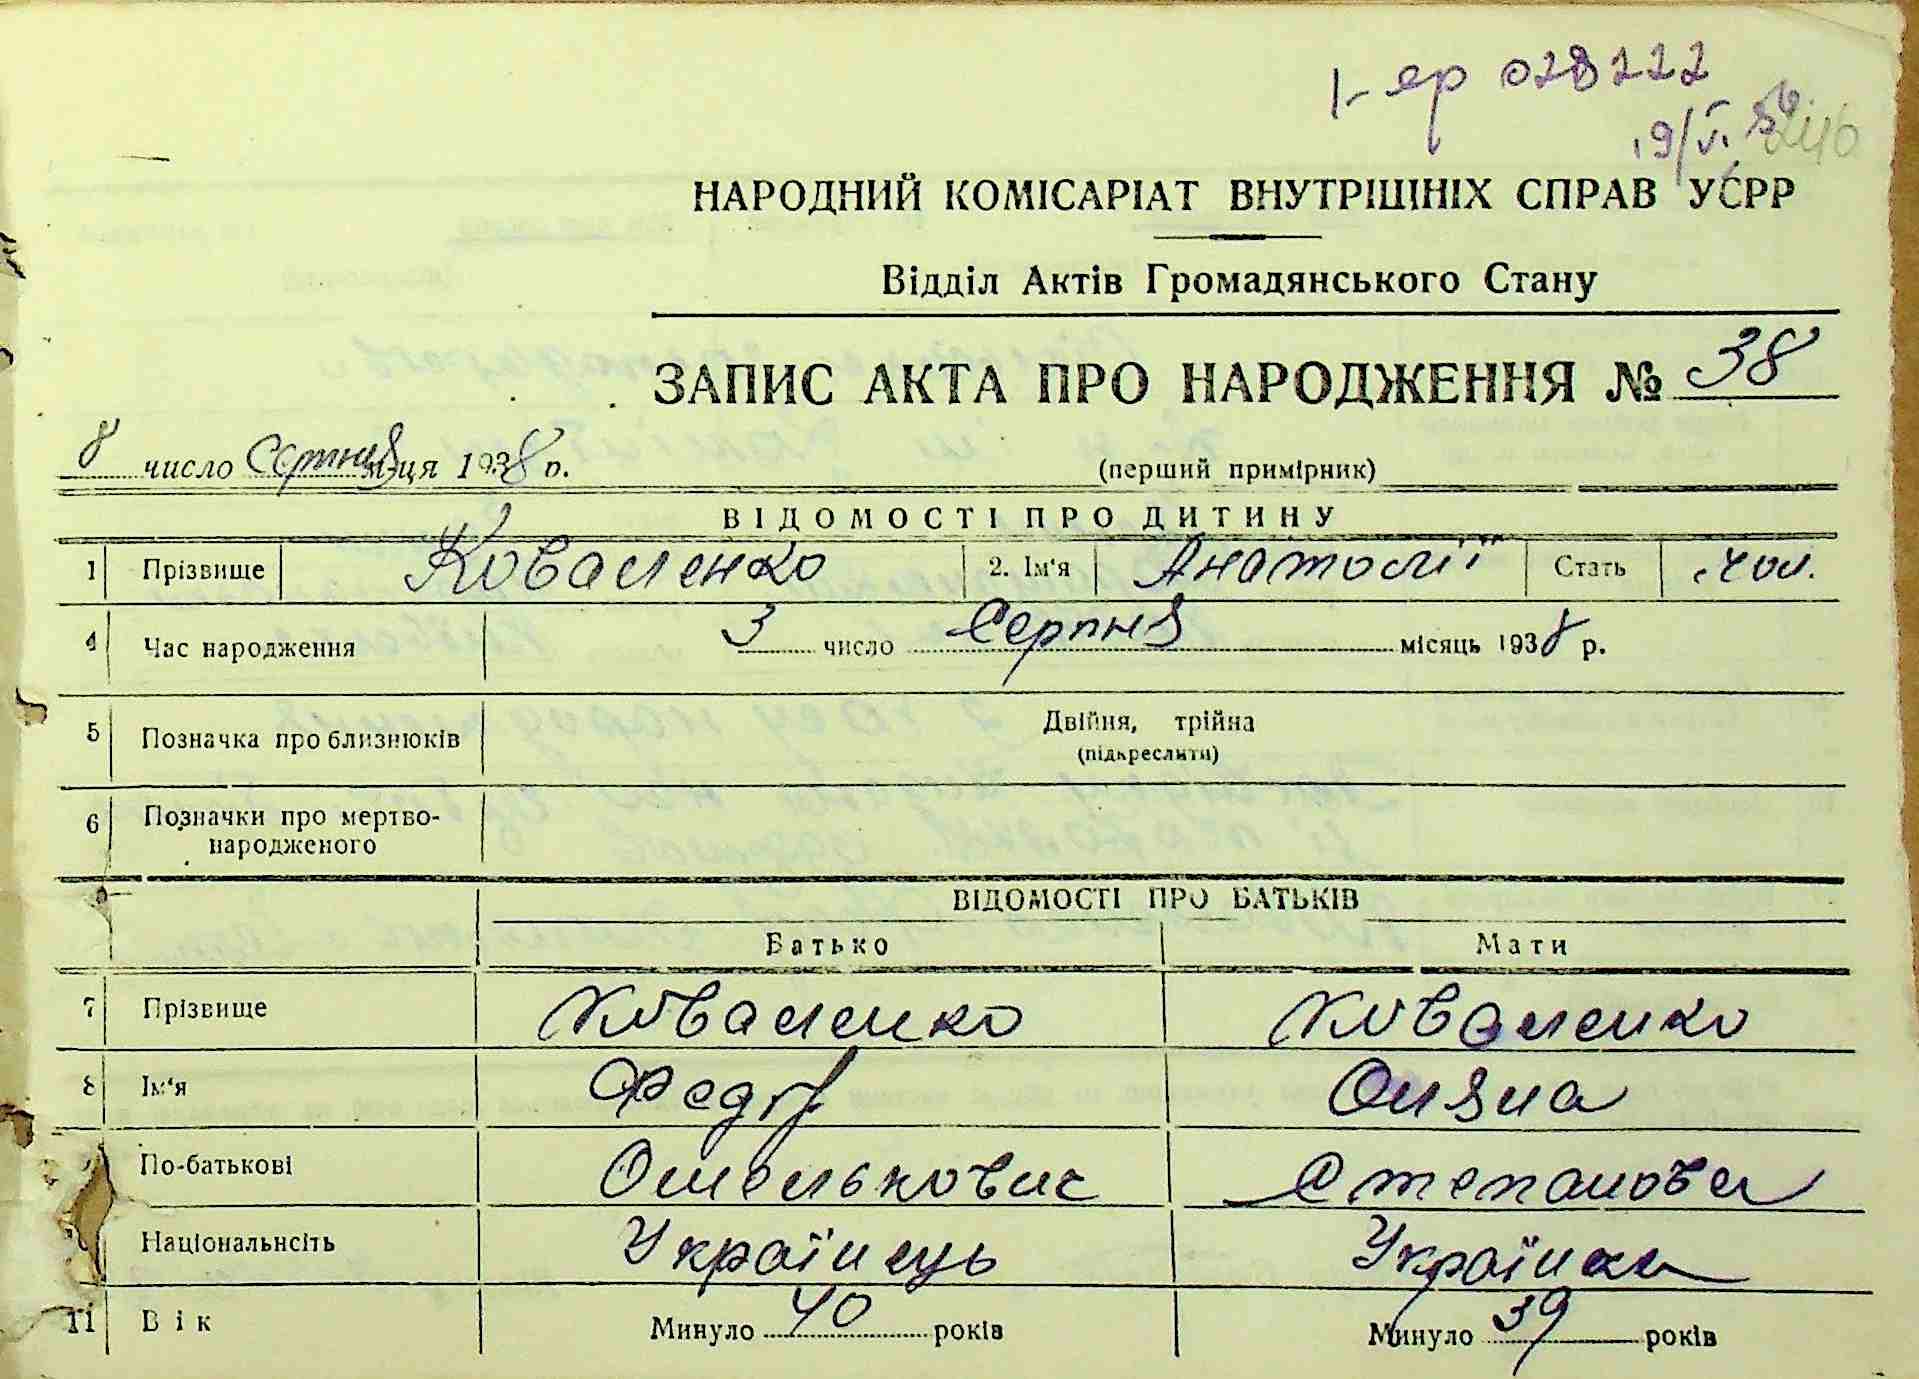 І-ер 028222
19/V.56
246
НАРОДНИЙ КОМІСАРІАТ ВНУТРІШНІХ СПРАВ УСРР
Відділ Актів Громадянського Стану
ЗАПИС АКТА ПРО НАРОДЖЕННЯ № 38
8 число Серпня м-ця 1938 р. (перший примірник)
ВІДОМОСТІ ПРО ДИТИНУ
1 Прізвище Коваленко 2. Ім'я Анатолії Стать чол.
4 Час народження 3 число Серпня місяць 1938 р.
5 Позначка про близнюків Двійня, трійна
(підкреслити)
6 Позначки про мертво-
народженого
ВІДОМОСТІ ПРО БАТЬКІВ
Батько Мати
7 Прізвище Коваленко Коваленко
8 Ім'я Федір Оляна
По-батькові Омелькович Степановна
Національнсіть Українець Українка
11 Вік Минуло 40 років Минуло 39 років